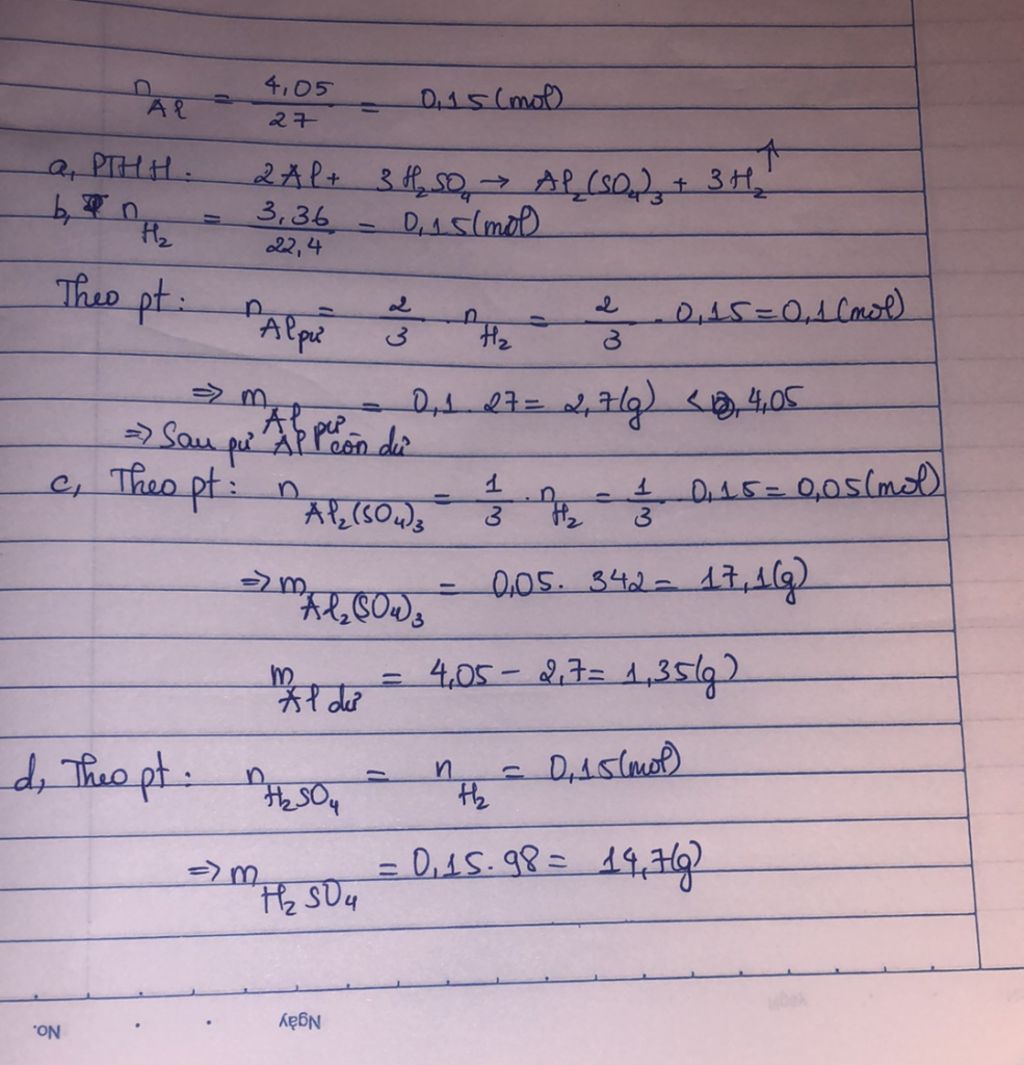 n Al = 4,05 / 27 = 0,15 (mol)
a, PTHH: 2Al + 3H₂SO₄ → Al₂(SO₄)₃ + 3H₂ ↑
b, n H₂ = 3,36 / 22,4 = 0,15 (mol)
Theo pt: n Al pư = 2/3 . n H₂ = 2/3 . 0,15 = 0,1 (mol)
=> m Al pư = 0,1 . 27 = 2,7 (g) < 4,05
=> Sau pư Al còn dư
c, Theo pt: n Al₂(SO₄)₃ = 1/3 . n H₂ = 1/3 0,15 = 0,05 (mol)
=> m Al₂(SO₄)₃ = 0,05 . 342 = 17,1 (g)
m Al dư = 4,05 - 2,7 = 1,35 (g)
d, Theo pt: n H₂SO₄ = n H₂ = 0,15 (mol)
=> m H₂SO₄ = 0,15 . 98 = 14,7 (g)
No. Ngày